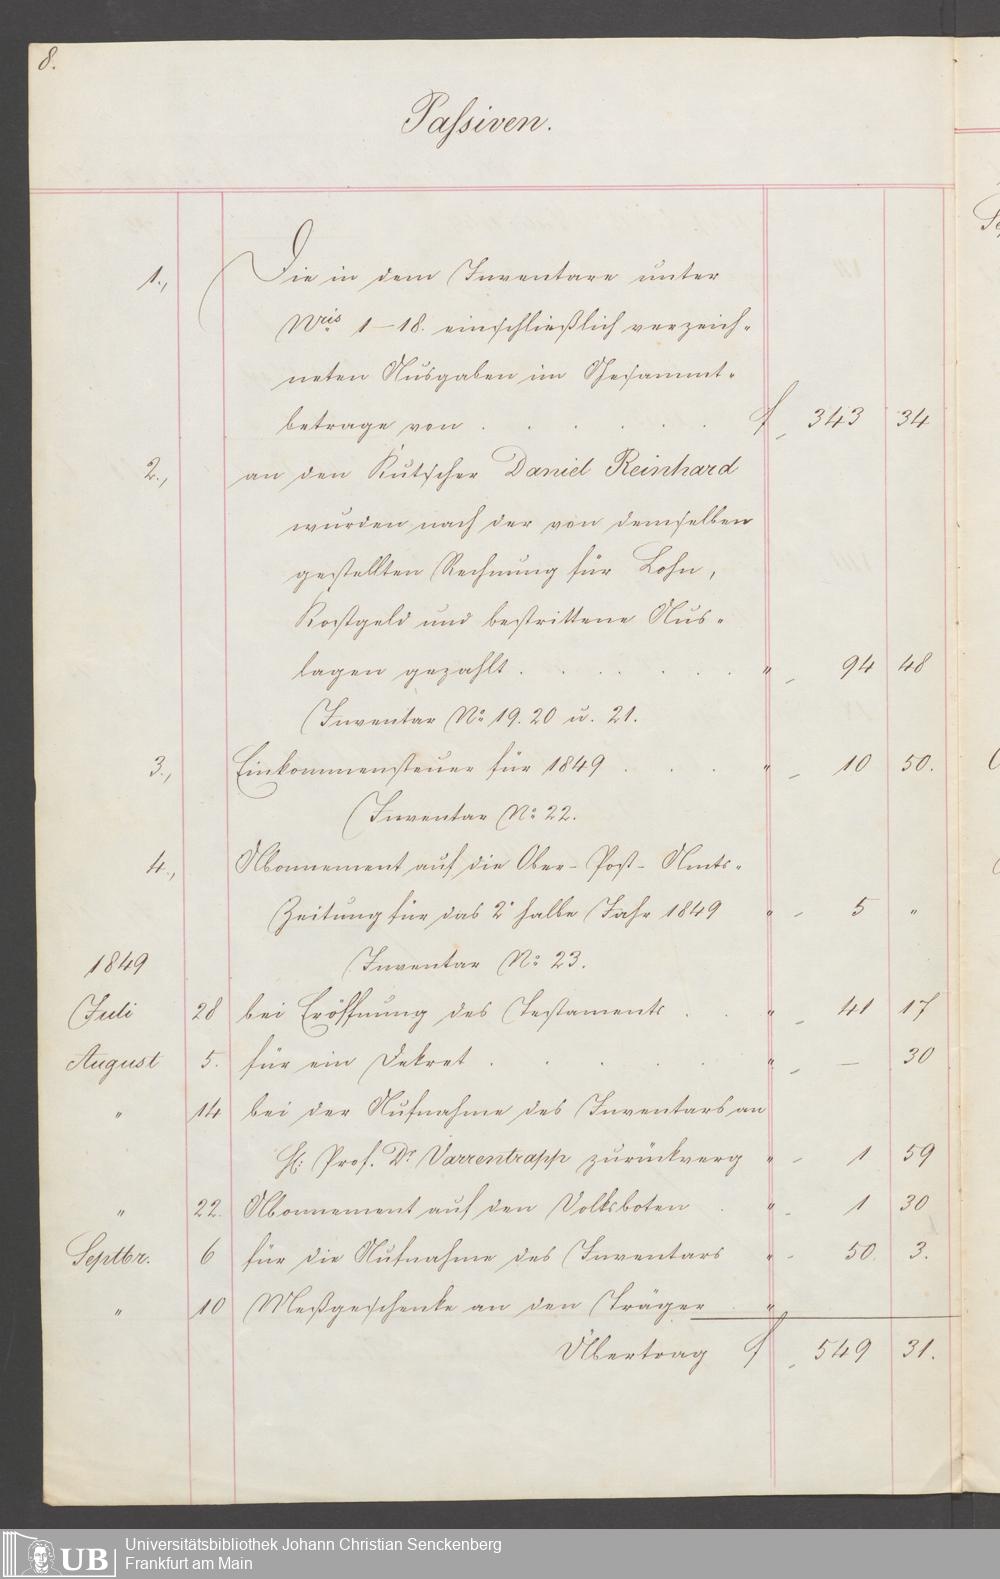 8.
Passiven.
1., Die in dem Inventare unter
Nris 1–18. einschließlich verzeich-
neten Ausgaben im Gesammt-
betrage von . . . . . . f 343 34
2., an den Kutscher Daniel Reinhard
wurden nach der von demselben
gestellten Rechnung für Lohn,
Kostgeld und bestrittene Aus-
lagen gezahlt . . . . . . " 94 48
Inventar No 19. 20 u. 21.
3., Einkommensteuer für 1849 . . . " 10 50.
Inventar No 22.
4., Abonnement auf die Ober-Post-Amts-
Zeitung für das 2t halbe Jahr 1849 " 5 "
1849 Inventar No 23.
Juli 28 bei Eröffnung des Testaments . . " 41 17
August 5. für ein Dekret . . . . " — 30
" 14 bei der Aufnahme des Inventars an
H: Prof. Dr Varrentrapp zurückverg " 1 59
" 22. Abonnement auf den Volksboten . " 1 30
Septbr. 6 für die Aufnahme des Inventars " 50. 3.
" 10 Meßgeschenke an den Träger . "
Übertrag f 549 31.
UB Universitätsbibliothek Johann Christian Senckenberg
Frankfurt am Main